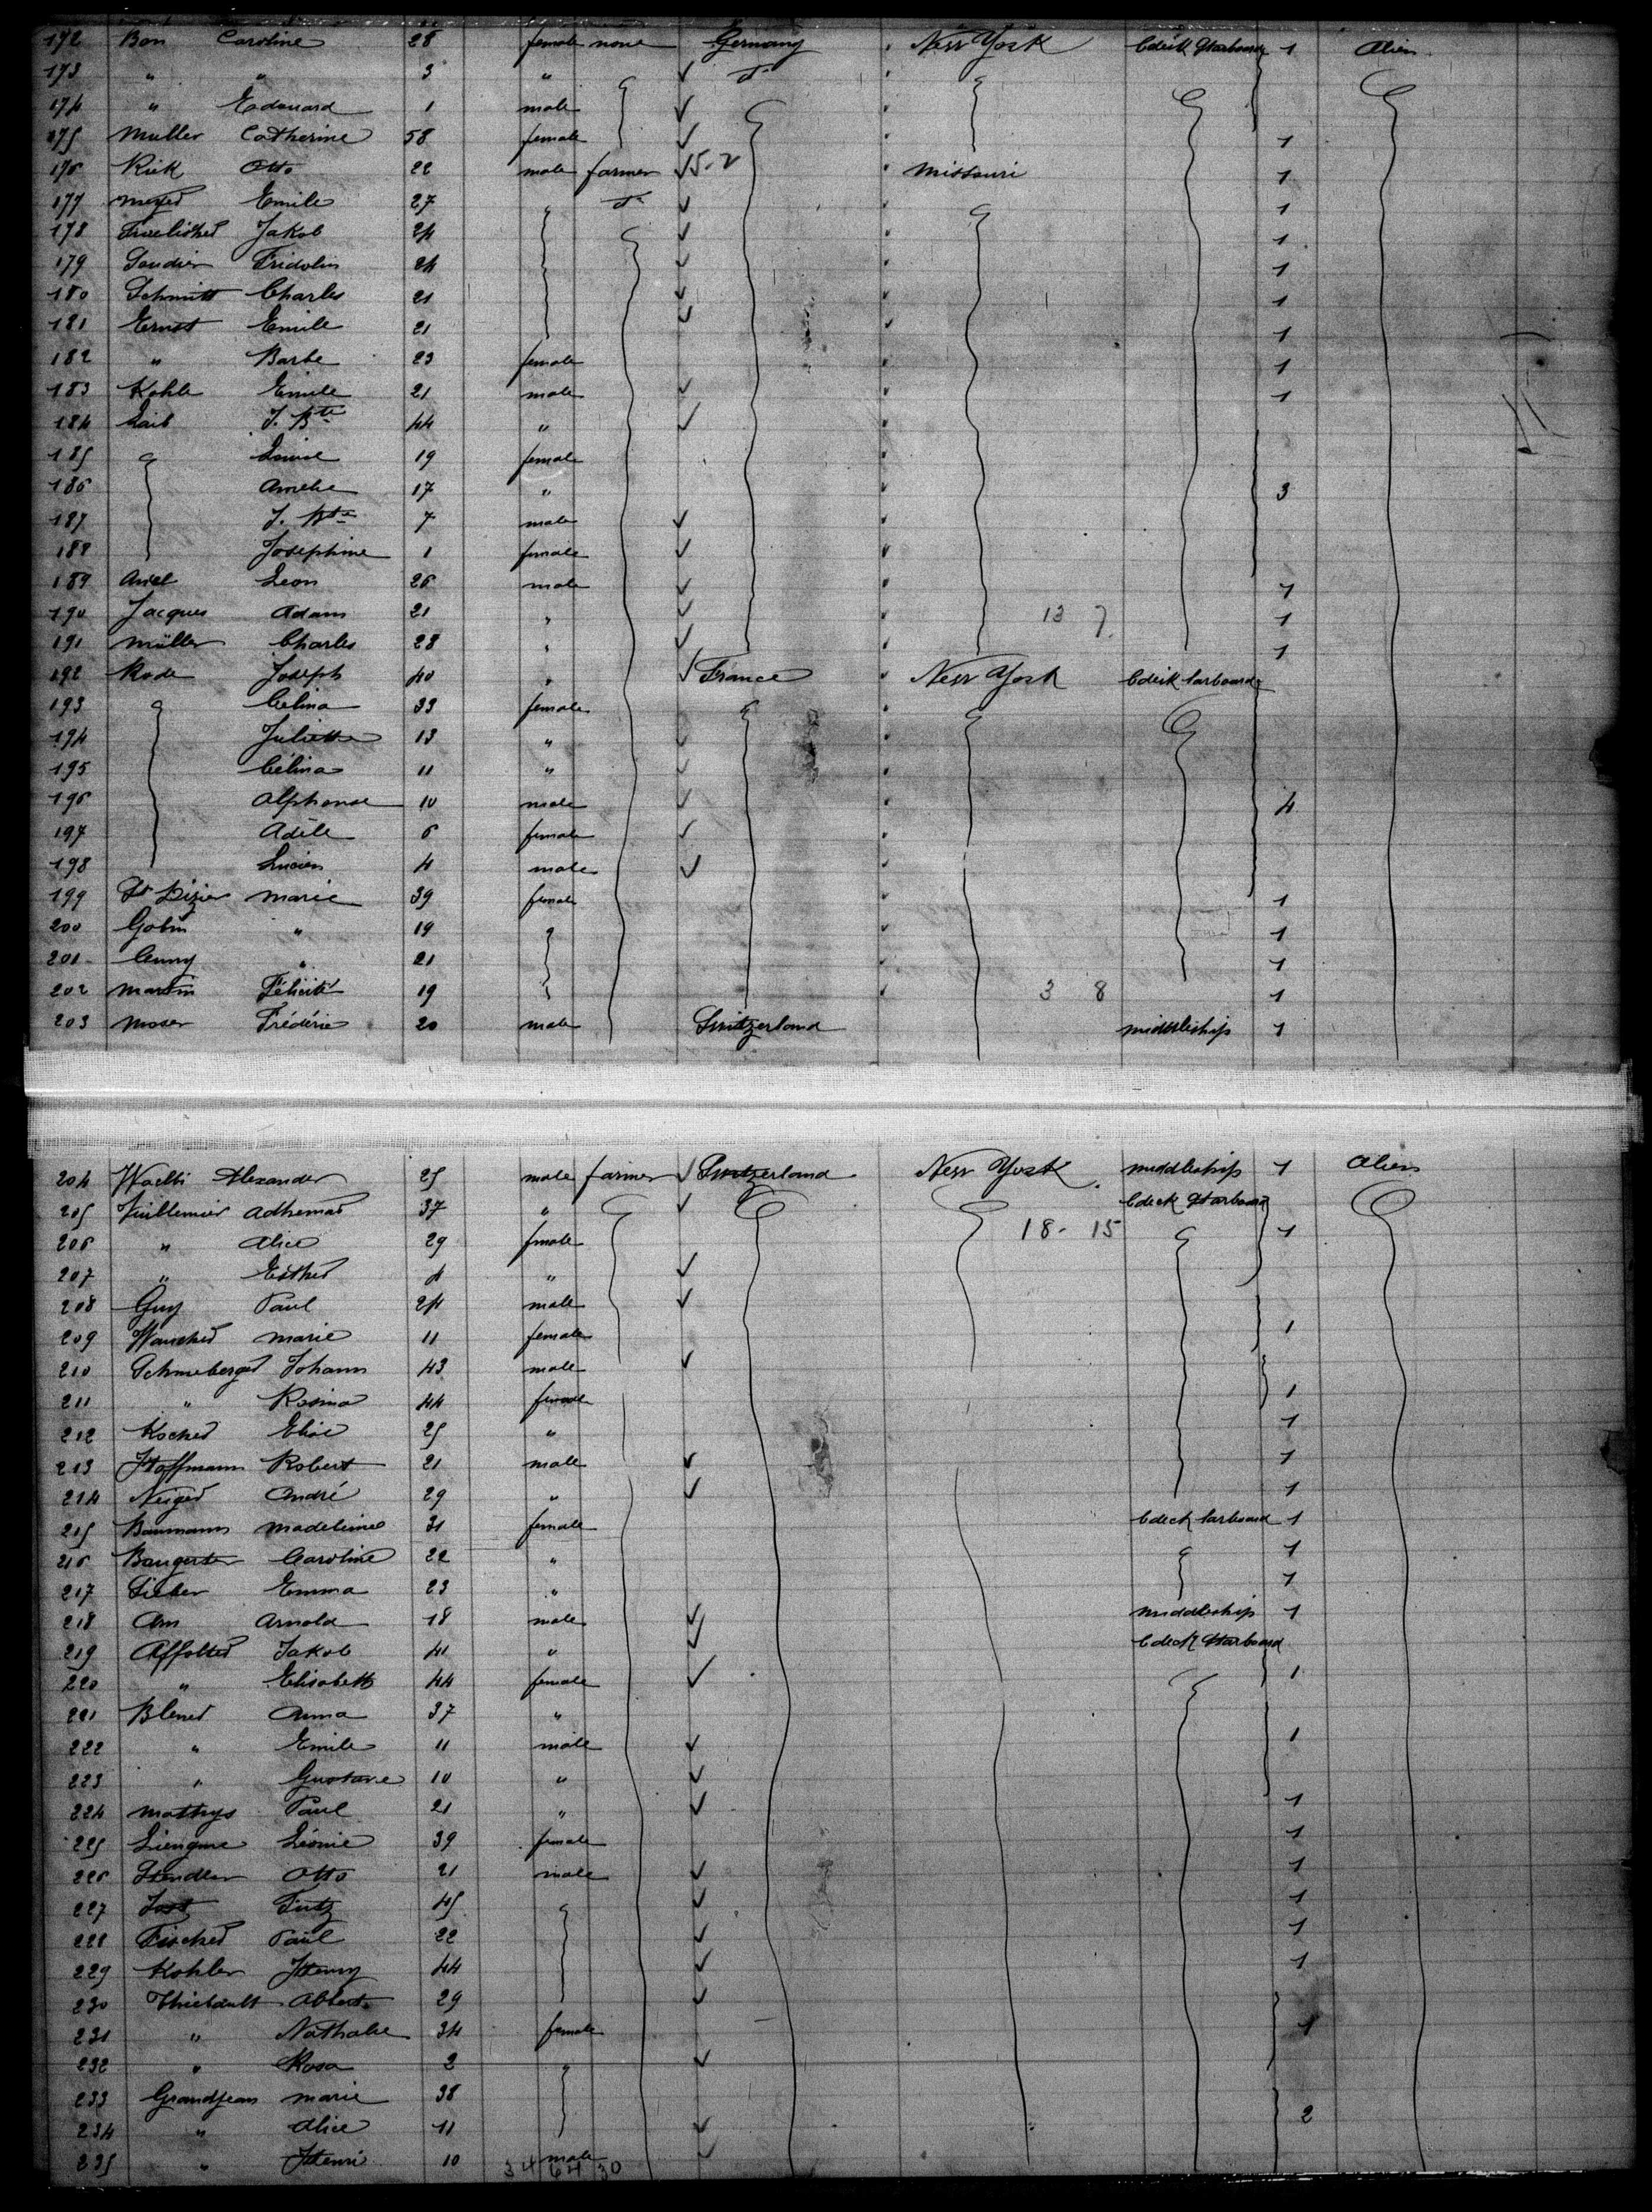 172 Bon Caroline 28 female none Germany New York 1 Alien
173 " " 3 "
174 " Edouard 1 male
175 Muller Catherine 58 female 1
176 Rick Otto 22 male farmer 15.2 Missouri 1
177 Meyer Emile 27 " 1
178 Jakob 24 1
179 Fridolin 24 1
180 Schmitt Charles 21 1
181 Ernst Emile 21 1
182 " Barbe 23 female 1
183 Kohle Emile 21 male 1
184 Laib J. Bte 44 "
185 Louise 19 female
186 Amelie 17 " 3
187 J. Bte 7 male
188 Josephine 1 female
189 Leon 26 male 1
190 Jacques Adam 21 " 13 7 1
191 Müller Charles 28 " 1
192 Rode Joseph 40 " France New York
193 Celina 33 female
194 Juliette 13 "
195 Célina 11 "
196 Alphonse 10 male 4
197 Adèle 6 female
198 Lucien 4 male
199 St Dizier Marie 39 female 1
200 Gobin " 19 1
201 " 21 1
202 Martin Félicité 19 3 8 1
203 Moser Frédéric 20 male Switzerland middleship 1
204 Waelti Alexander 25 male farmer Switzerland New York middleship 1 Alien
205 Vuillemier Adhemar 37 "
206 " Alice 29 female 18-15 1
207 " Esther 4 "
208 Guy Paul 24 male
209 Marie 11 female 1
210 Schneeberger Johann 43 male
211 " Rosina 44 female 1
212 Kocher Elise 25 " 1
213 Hoffmann Robert 21 male 1
214 Neiger André 29 " 1
215 Baumann Madeleine 31 female 1
216 Bangerter Caroline 22 " 1
217 Sieber Emma 23 " 1
218 Am Arnold 18 male middleship 1
219 Affolter Jakob 41 "
220 " Elisabeth 44 female 1
221 Anna 37 "
222 " Emile 11 male 1
223 " Gustave 10 "
224 Mathys Paul 21 " 1
225 Liengme Léonie 39 female 1
226 Otto 21 male 1
227 Jost Fritz 45 1
228 Fischer Paul 22 1
229 Kohler Henry 44 1
230 Thiebault Albert 29
231 " Nathalie 34 female 1
232 " Rosa 2 "
233 Grandjean Marie 38
234 " Alice 11 2
235 " Henri 10 male